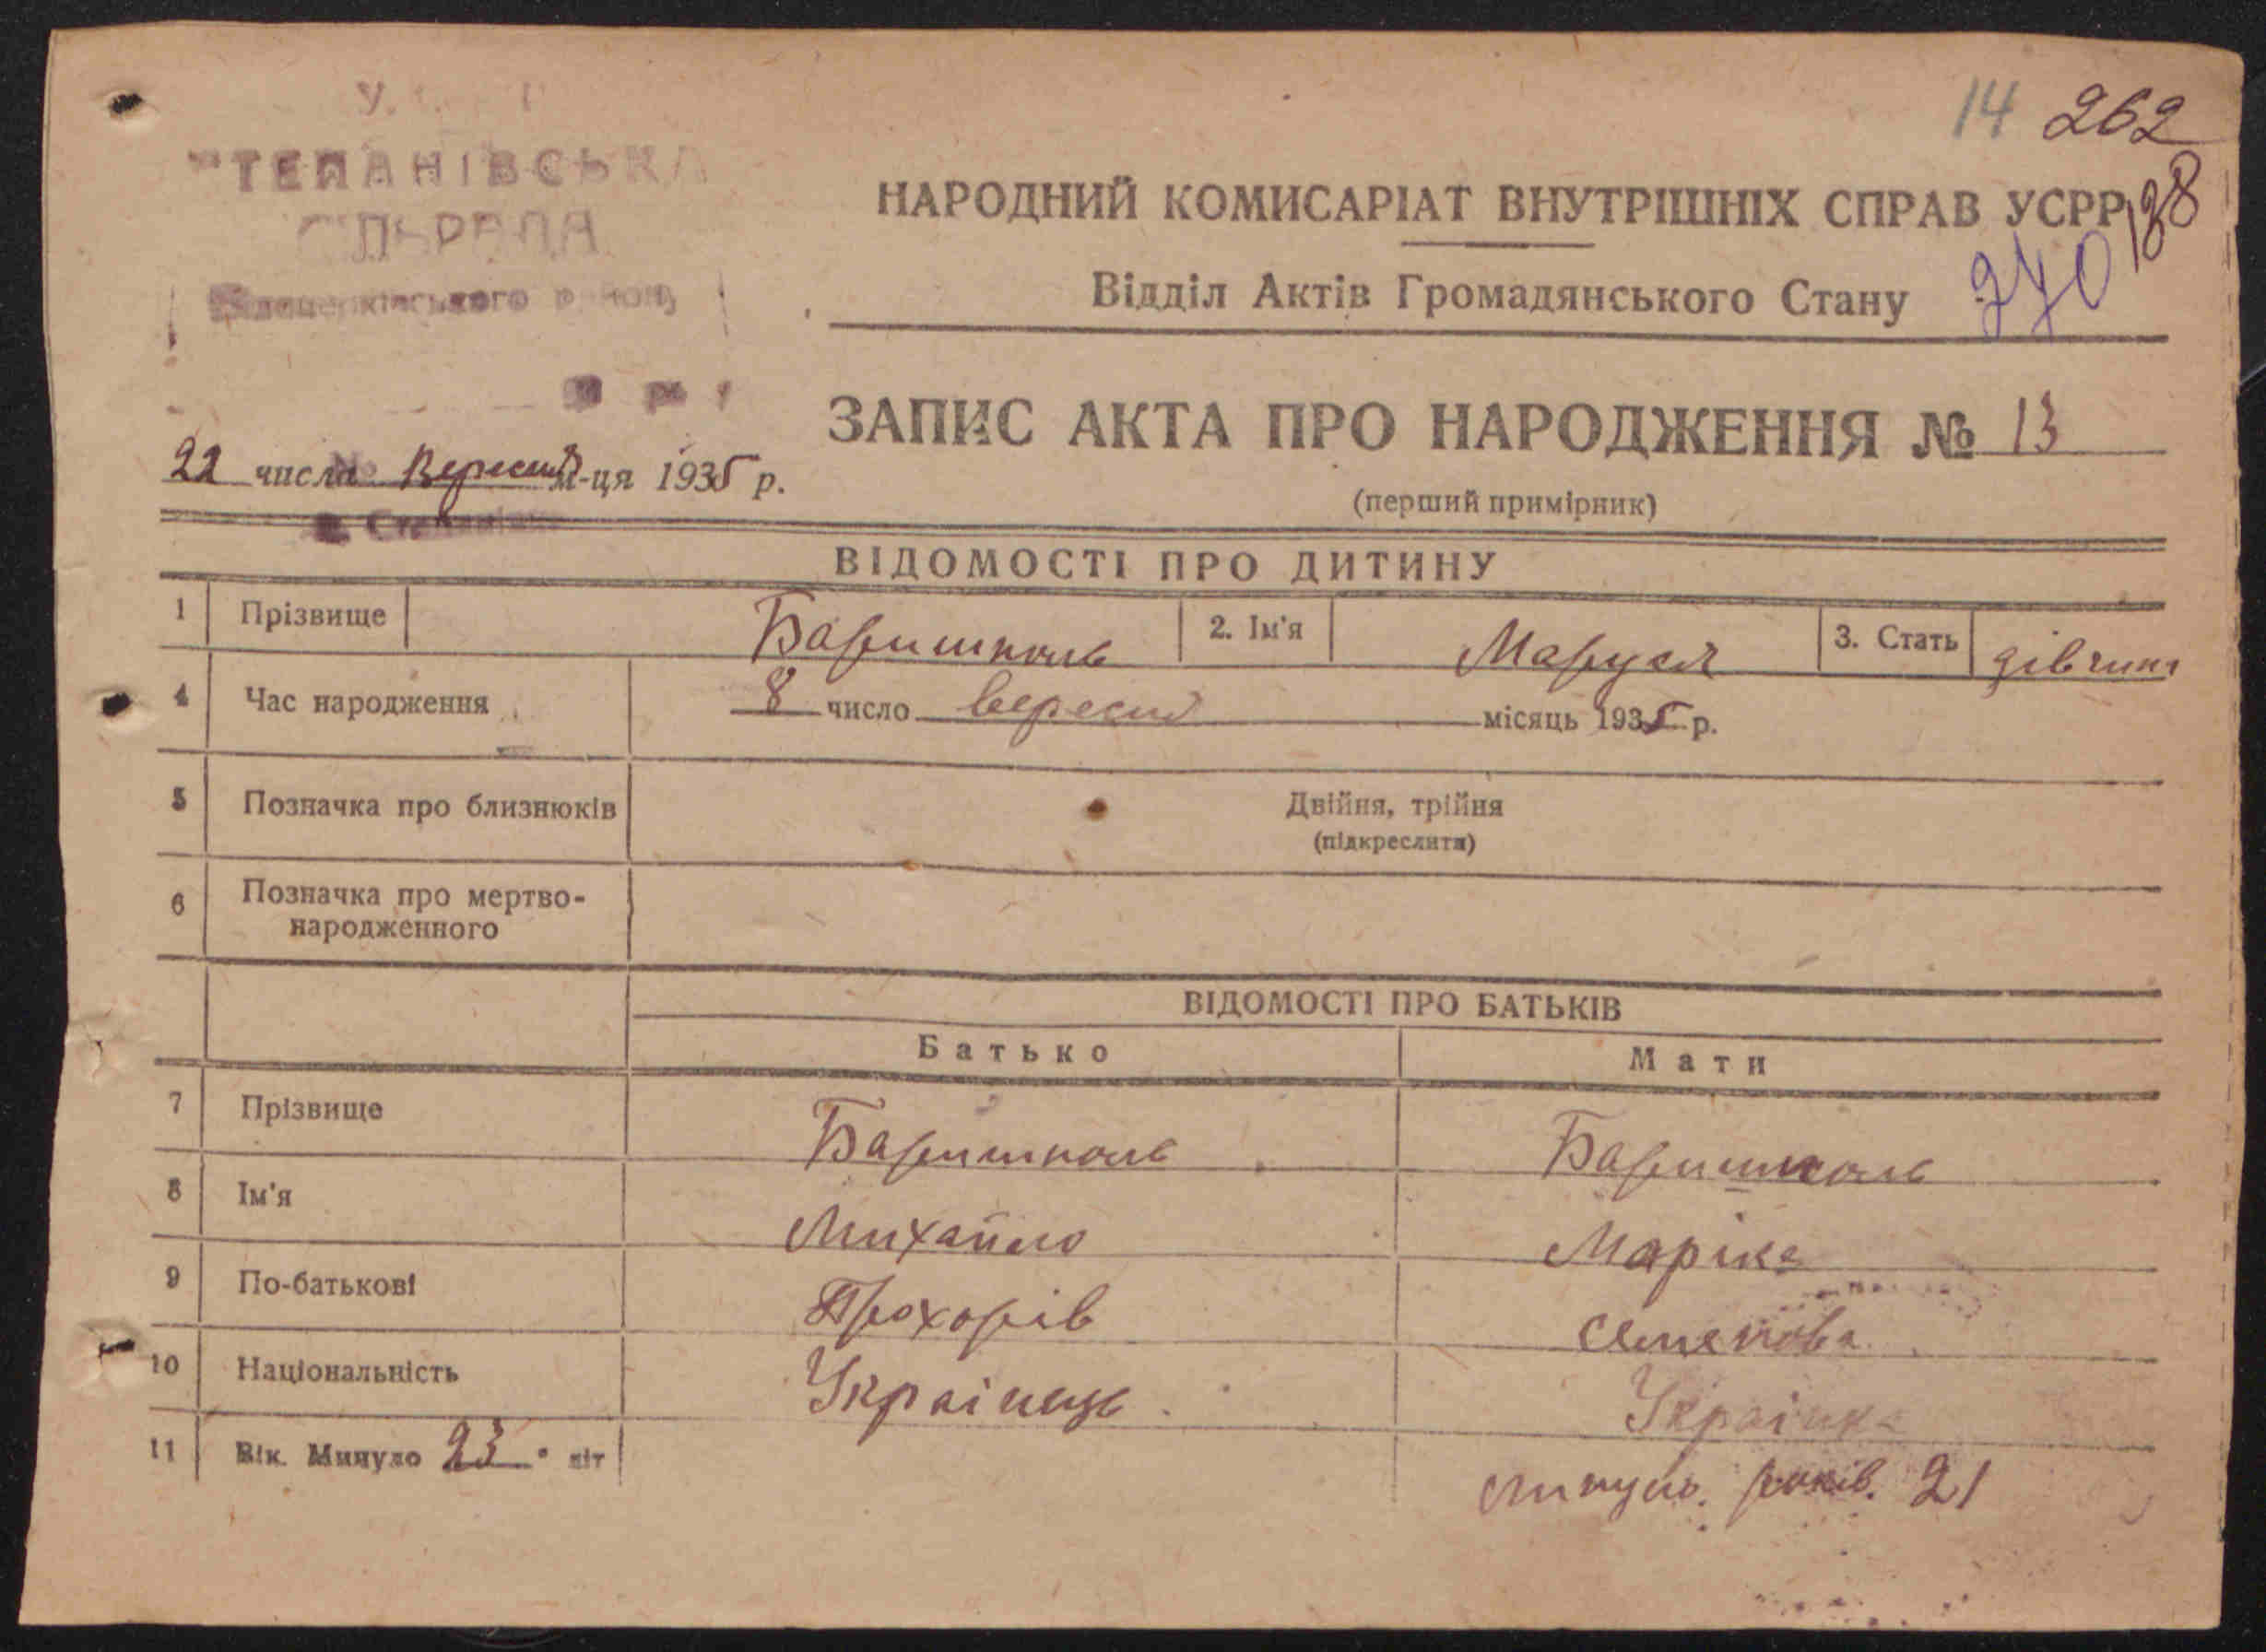 14 262
ТЕПАНІВСЬКА
СІЛЬРАДА
Білоцерківського району
НАРОДНИЙ КОМИСАРІАТ ВНУТРІШНІХ СПРАВ УСРР
138
Відділ Актів Громадянського Стану
270
ЗАПИС АКТА ПРО НАРОДЖЕННЯ № 13
22 числа Вересня м-ця 1935 р.
(перший примірник)
с. Степанівка
ВІДОМОСТІ ПРО ДИТИНУ
1 Прізвище Баришполь 2. Ім'я Маруся 3. Стать дівчина
4 Час народження 8 число вересня місяць 1935 р.
5 Позначка про близнюків Двійня, трійня
(підкреслити)
6 Позначка про мертво-
народженного
ВІДОМОСТІ ПРО БАТЬКІВ
Батько Мати
7 Прізвище Баришполь Баришполь
8 Ім'я Михайло Маріка
9 По-батькові Прохорів Семенова
10 Національність Українець Українка
11 Вік. Минуло 23 літ минуло років. 21